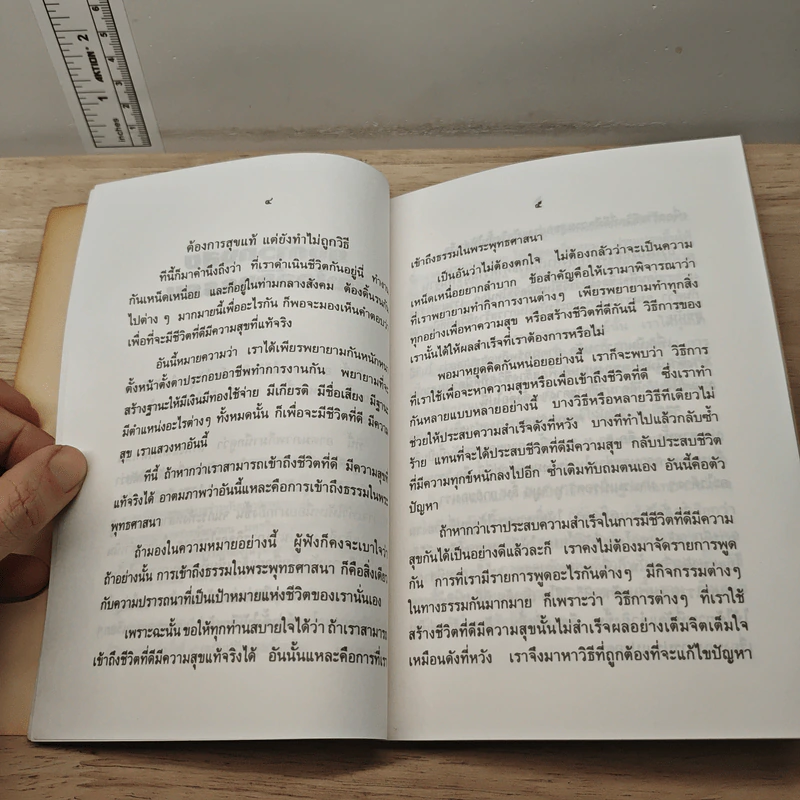 inches
1
2
AKTION
๔
ต้องการสุขแท้ แต่ยังทำไม่ถูกวิธี
ทีนี้ก็มาคำนึงถึงว่า ที่เราดำเนินชีวิตกันอยู่นี่ ทำงาน
กันเหน็ดเหนื่อย และก็อยู่ในท่ามกลางสังคม ต้องดิ้นรนกัน
ไปต่าง ๆ มากมายนี้เพื่ออะไรกัน ก็พอจะมองเห็นคำตอบว่า
เพื่อที่จะมีชีวิตที่ดีมีความสุขที่แท้จริง
อันนี้หมายความว่า เราได้เพียรพยายามกันหนักหนา
ตั้งหน้าตั้งตาประกอบอาชีพทำการงานกัน พยายามที่จะ
สร้างฐานะให้มีเงินมีทองใช้จ่าย มีเกียรติ มีชื่อเสียง มีฐานะ
มีตำแหน่งอะไรต่างๆ ทั้งหมดนั้น ก็เพื่อจะมีชีวิตที่ดี มีความ
สุข เราแสวงหาอันนี้
ทีนี้ ถ้าหากว่าเราสามารถเข้าถึงชีวิตที่ดี มีความสุขที่
แท้จริงได้ อาตมภาพว่าอันนี้แหละคือการเข้าถึงธรรมในพระ
พุทธศาสนา
ถ้ามองในความหมายอย่างนี้ ผู้ฟังก็คงจะเบาใจว่า
ถ้าอย่างนั้น การเข้าถึงธรรมในพระพุทธศาสนา ก็คือสิ่งเดียว
กับความปรารถนาที่เป็นเป้าหมายแห่งชีวิตของเรานั่นเอง
เพราะฉะนั้น ขอให้ทุกท่านสบายใจได้ว่า ถ้าเราสามารถ
เข้าถึงชีวิตที่ดีมีความสุขแท้จริงได้ อันนั้นแหละคือการที่เรา
๕
เข้าถึงธรรมในพระพุทธศาสนา
เป็นอันว่าไม่ต้องตกใจ ไม่ต้องกลัวว่าจะเป็นความ
เหน็ดเหนื่อยยากลำบาก ข้อสำคัญคือให้เรามาพิจารณาว่า
ที่เราพยายามทำกิจการงานต่างๆ เพียรพยายามทำทุกสิ่ง
ทุกอย่างเพื่อหาความสุข หรือสร้างชีวิตที่ดีกันนี่ วิธีการของ
เรานั้นได้ให้ผลสำเร็จที่เราต้องการหรือไม่
พอมาหยุดคิดกันหน่อยอย่างนี้ เราก็จะพบว่า วิธีการ
ที่เราใช้เพื่อจะหาความสุขหรือเพื่อเข้าถึงชีวิตที่ดี ซึ่งเราทำ
กันหลายแบบหลายอย่างนี้ บางวิธีหรือหลายวิธีทีเดียวไม่
ช่วยให้ประสบความสำเร็จดังที่หวัง บางทีทำไปแล้วกลับซ้ำ
ร้าย แทนที่จะได้ประสบชีวิตที่ดีมีความสุข กลับประสบชีวิต
ที่มีความทุกข์หนักลงไปอีก ซ้ำเติมทับถมตนเอง อันนี้คือตัว
ปัญหา
ถ้าหากว่าเราประสบความสำเร็จในการมีชีวิตที่ดีมีความ
สุขกันได้เป็นอย่างดีแล้วละก็ เราคงไม่ต้องมาจัดรายการพูด
กัน การที่เรามีรายการพูดอะไรกันต่างๆ มีกิจกรรมต่างๆ
ในทางธรรมกันมากมาย ก็เพราะว่า วิธีการต่างๆ ที่เราใช้
สร้างชีวิตที่ดีมีความสุขนั้นไม่สำเร็จผลอย่างเต็มจิตเต็มใจ
เหมือนดังที่หวัง เราจึงมาหาวิธีที่ถูกต้องที่จะแก้ไขปัญหา